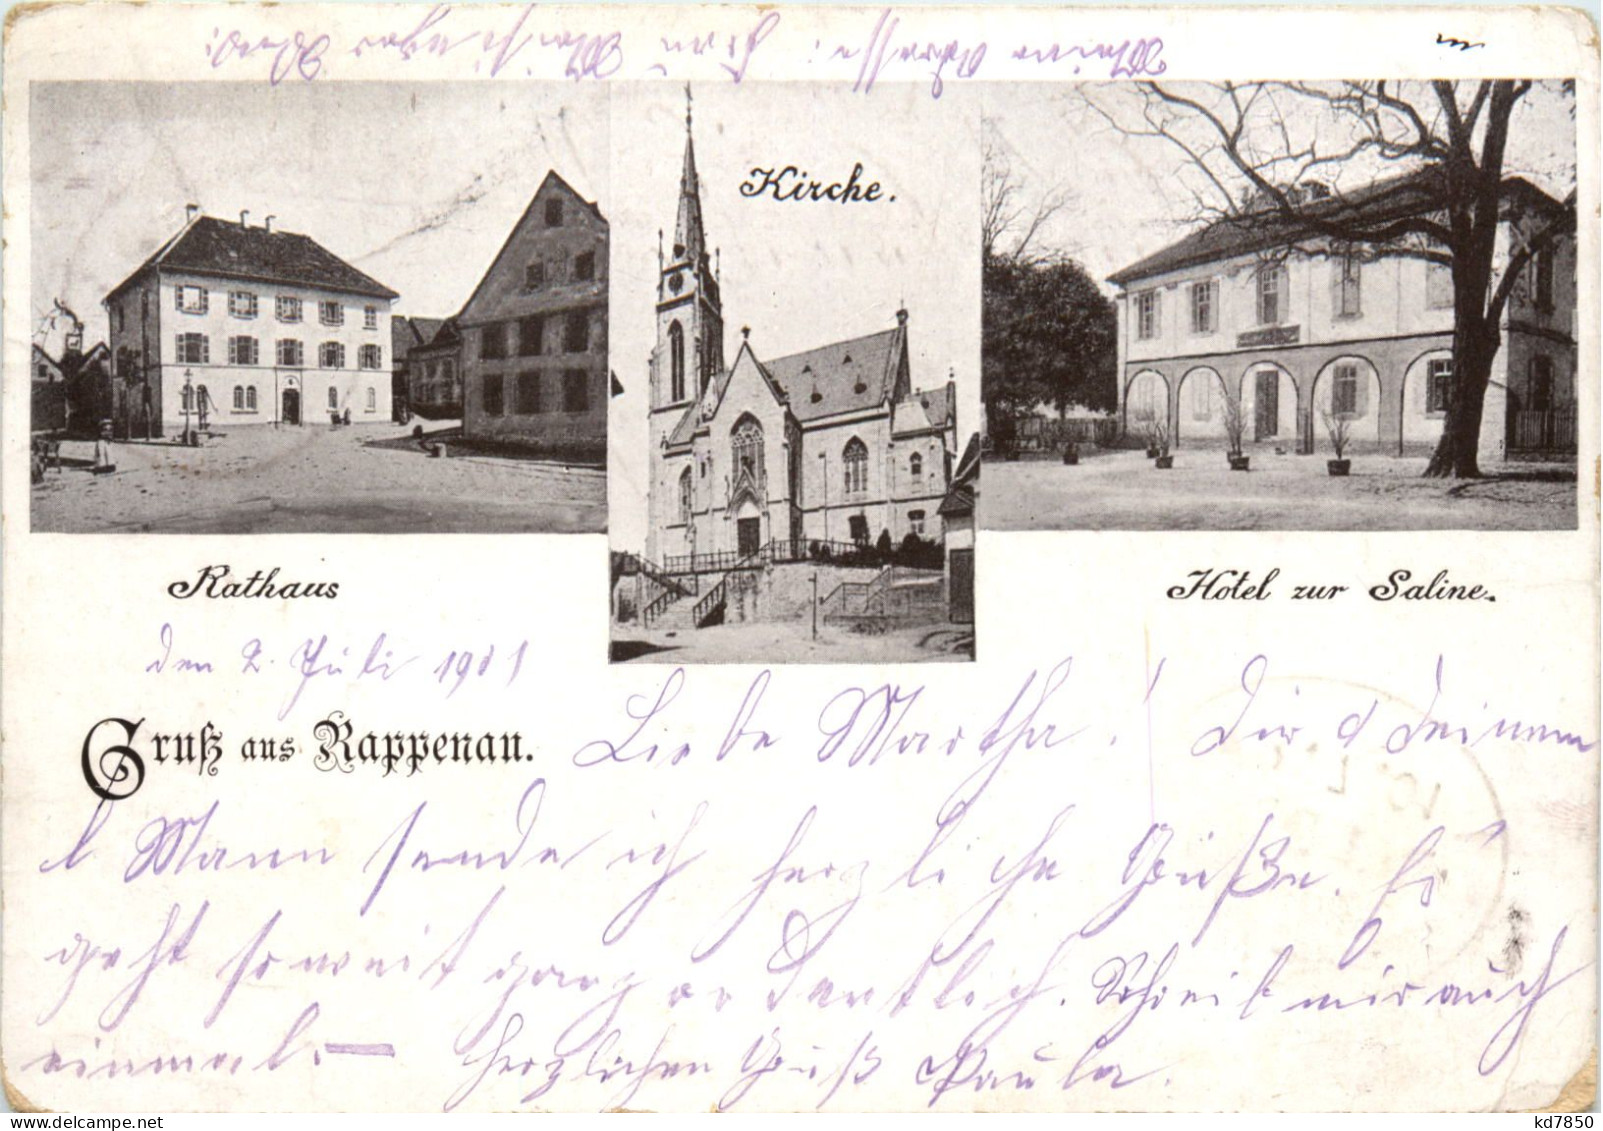 Meine Adresse: Frau
Kirche.
Rathaus
Hotel zur Saline.
den 2. Juli 1901
Gruß aus Rappenau.
Liebe Martha! Dir & deinem
l. Mann sende ich herzliche Grüße. Es
geht soweit ganz ordentlich. Schreib mir auch
einmal. — Herzlichen Gruß Paula.
kd7850